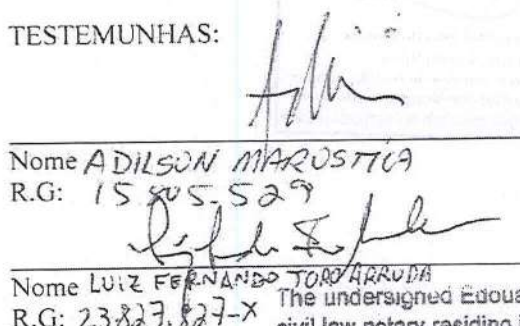 TESTEMUNHAS:
Nome ADILSON MAROSTICA
R.G: 15.805.529
Nome LUIZ FERNANDO TORO ARRUDA
R.G: 23.827.827-X
The undersigned Edoua
civil law notary residing